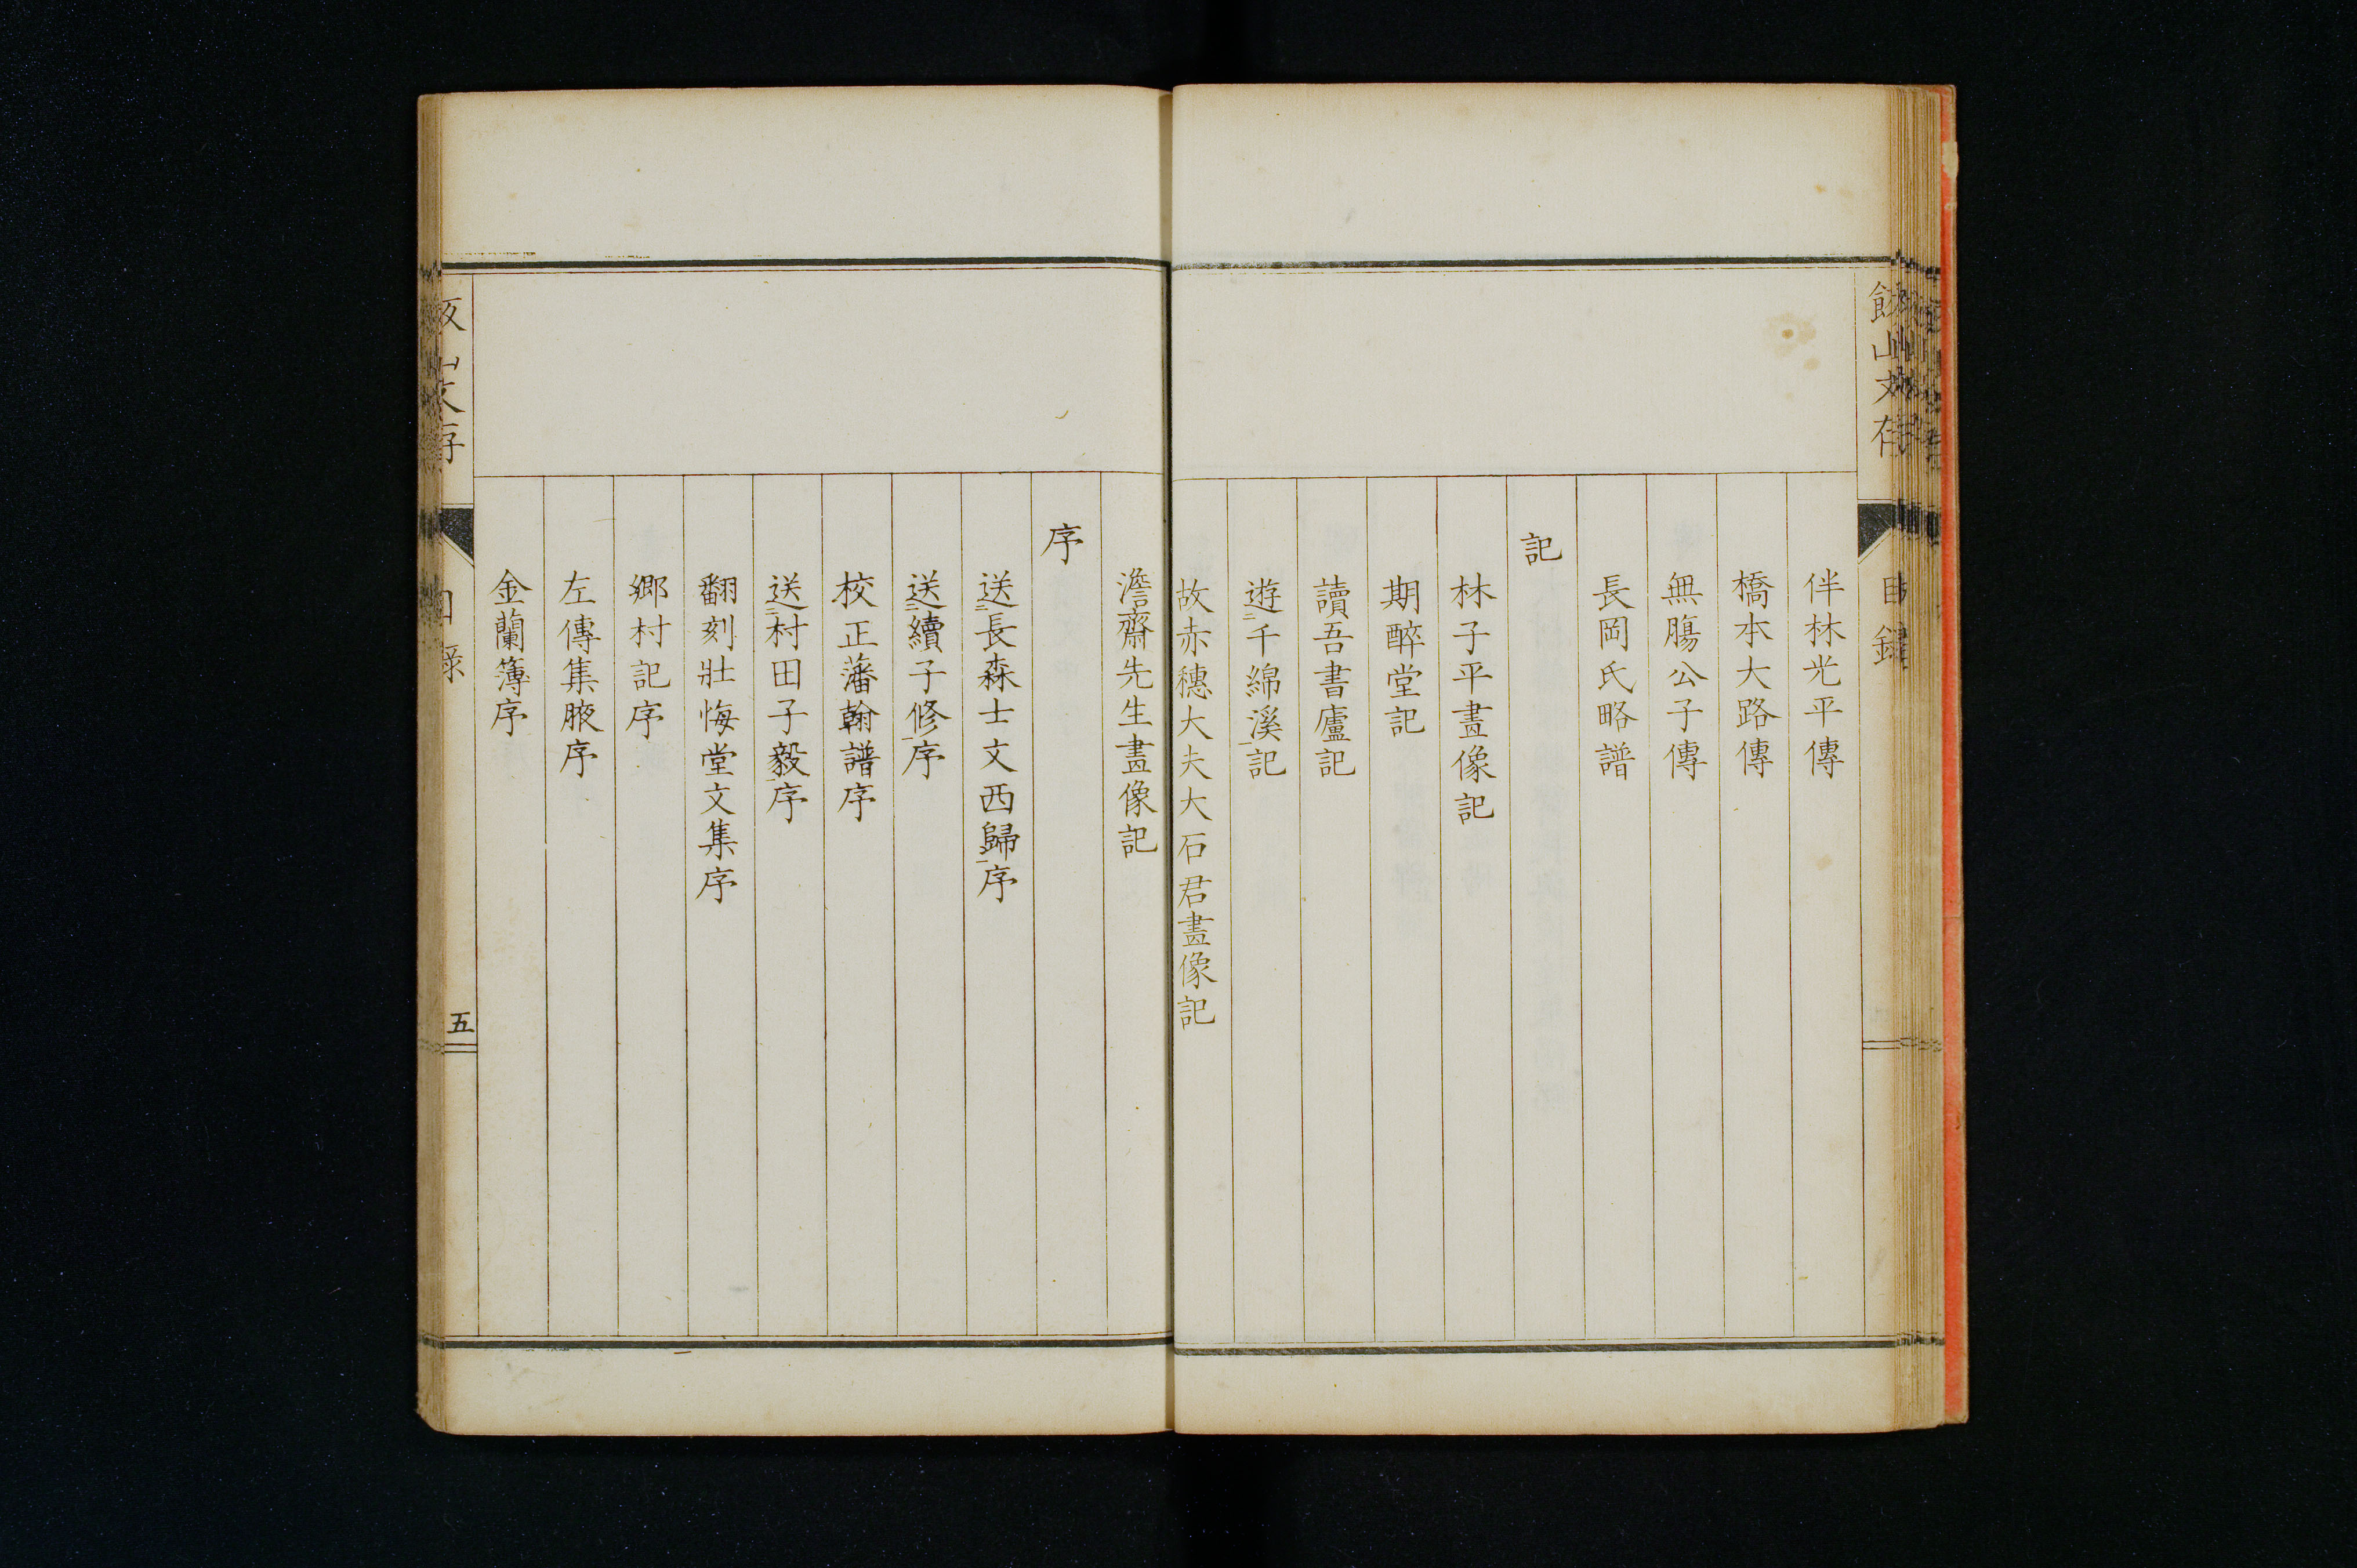 伴林光平傳
橋本大路傳
無膓公子傳
長岡氏略譜
記
林子平畫像記
期醉堂記
讀吾書廬記
遊二千綿溪一記
故赤穗大夫大石君畫像記
澹齋先生畫像記
序
送二長森士文西歸一序
送二續子修一序
校正藩翰譜序
送二村田子毅一序
翻刻壯悔堂文集序
鄉村記序
左傳集腋序
金蘭簿序
五